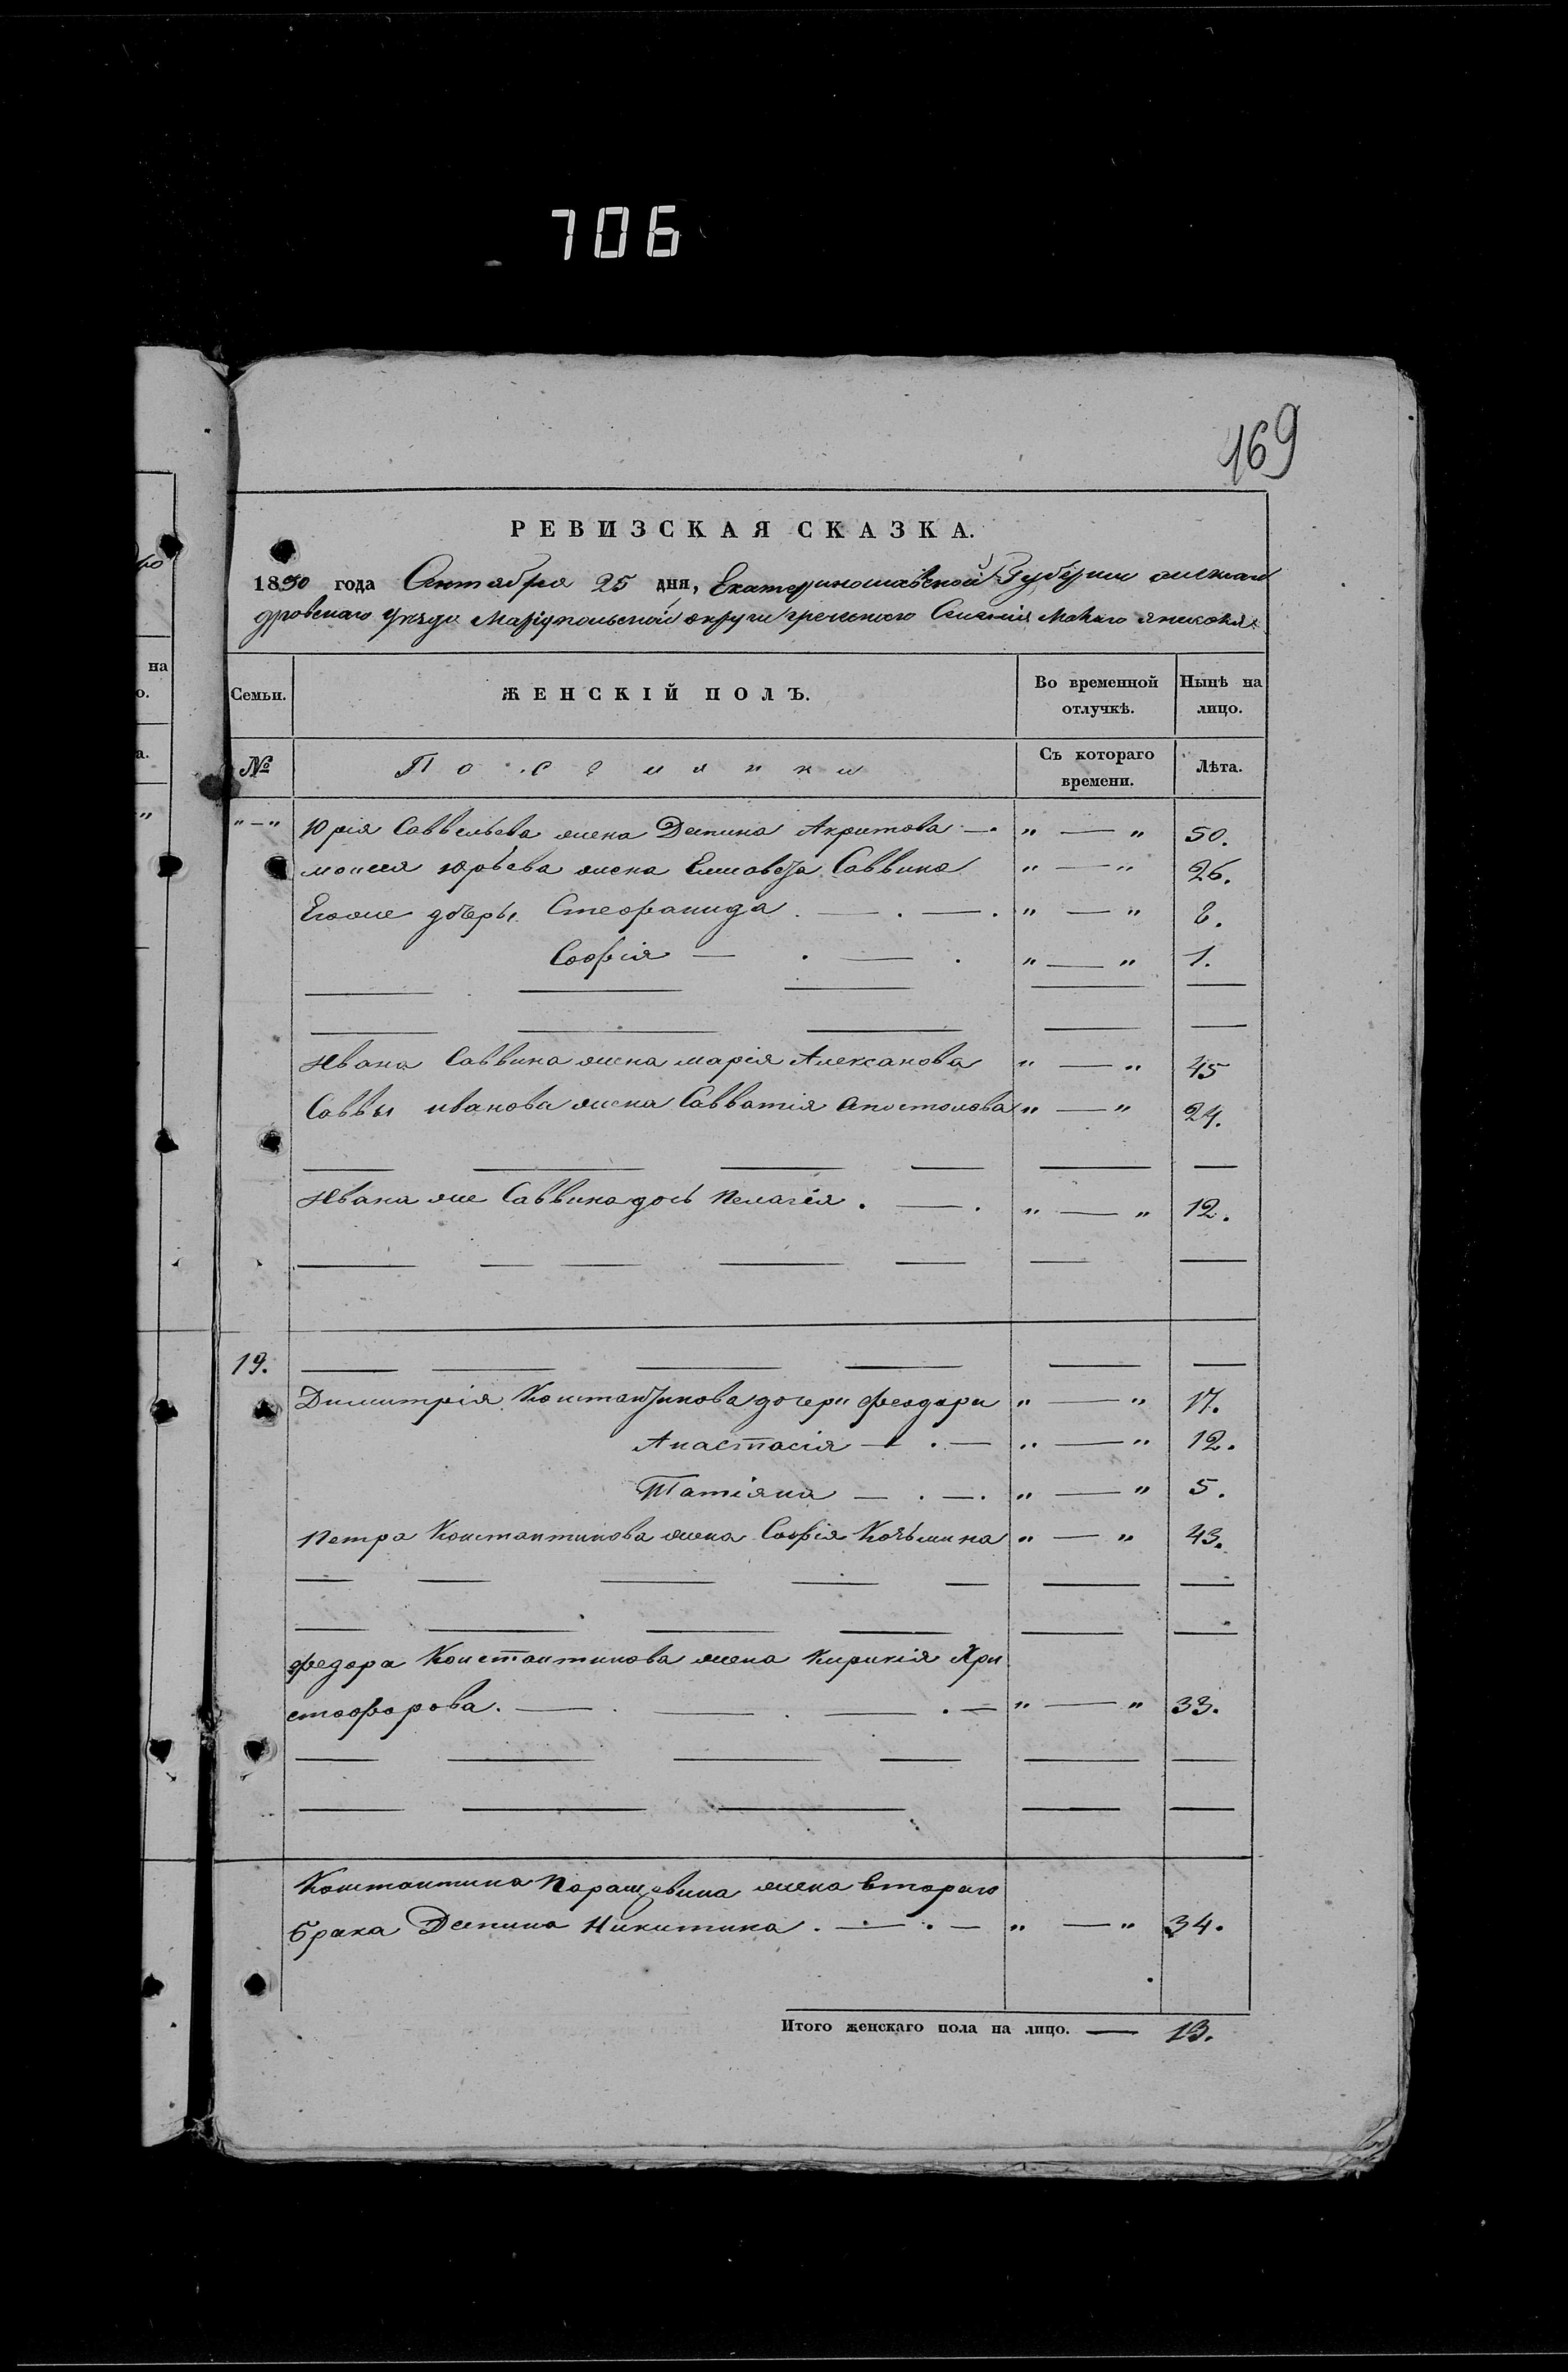 706
169
РЕВИЗСКАЯ СКАЗКА.
1850 года Октября 25 дня, Екатеринославской Губернии Алексан
дровскаго уезда Маріупольской округи греческого Селенія Малаго Янисоля
на
о.
Семьи.
ЖЕНСКІЙ ПОЛЪ.
Во временной отлучкѣ.
Нынѣ на лицо.
а.
№
Поселянки
Съ котораго времени.
Лѣта.
"—" Юрія Саввельева жена Деспина Акритова —. " — " 50.
Моисея Юрьева жена Елисавета Саввина " — " 26.
Егоже дочеры Стефанида . — . — . " — " 2.
Софія — . — . " — " 1.
Ивана Саввина жена Марія Алексанова " — " 45
Саввы Иванова жена Савватія Апостолова " — " 24.
Ивана же Саввина дочь Пелагія . — . " — " 12.
19.
Димитрія Константинова дочери Феодора " — " 17.
Анастасія — . — " — " 12.
Татіяна — . — . " — " 5.
Петра Константинова жена Софія Козьмина " — " 43.
Федора Константинова жена Кирикія Хри
стофорова. — . — . — . — " — " 33.
Константина жена втораго
брака Деспина Никитина . — . — " — " 34.
Итого женскаго пола на лицо. — 13.